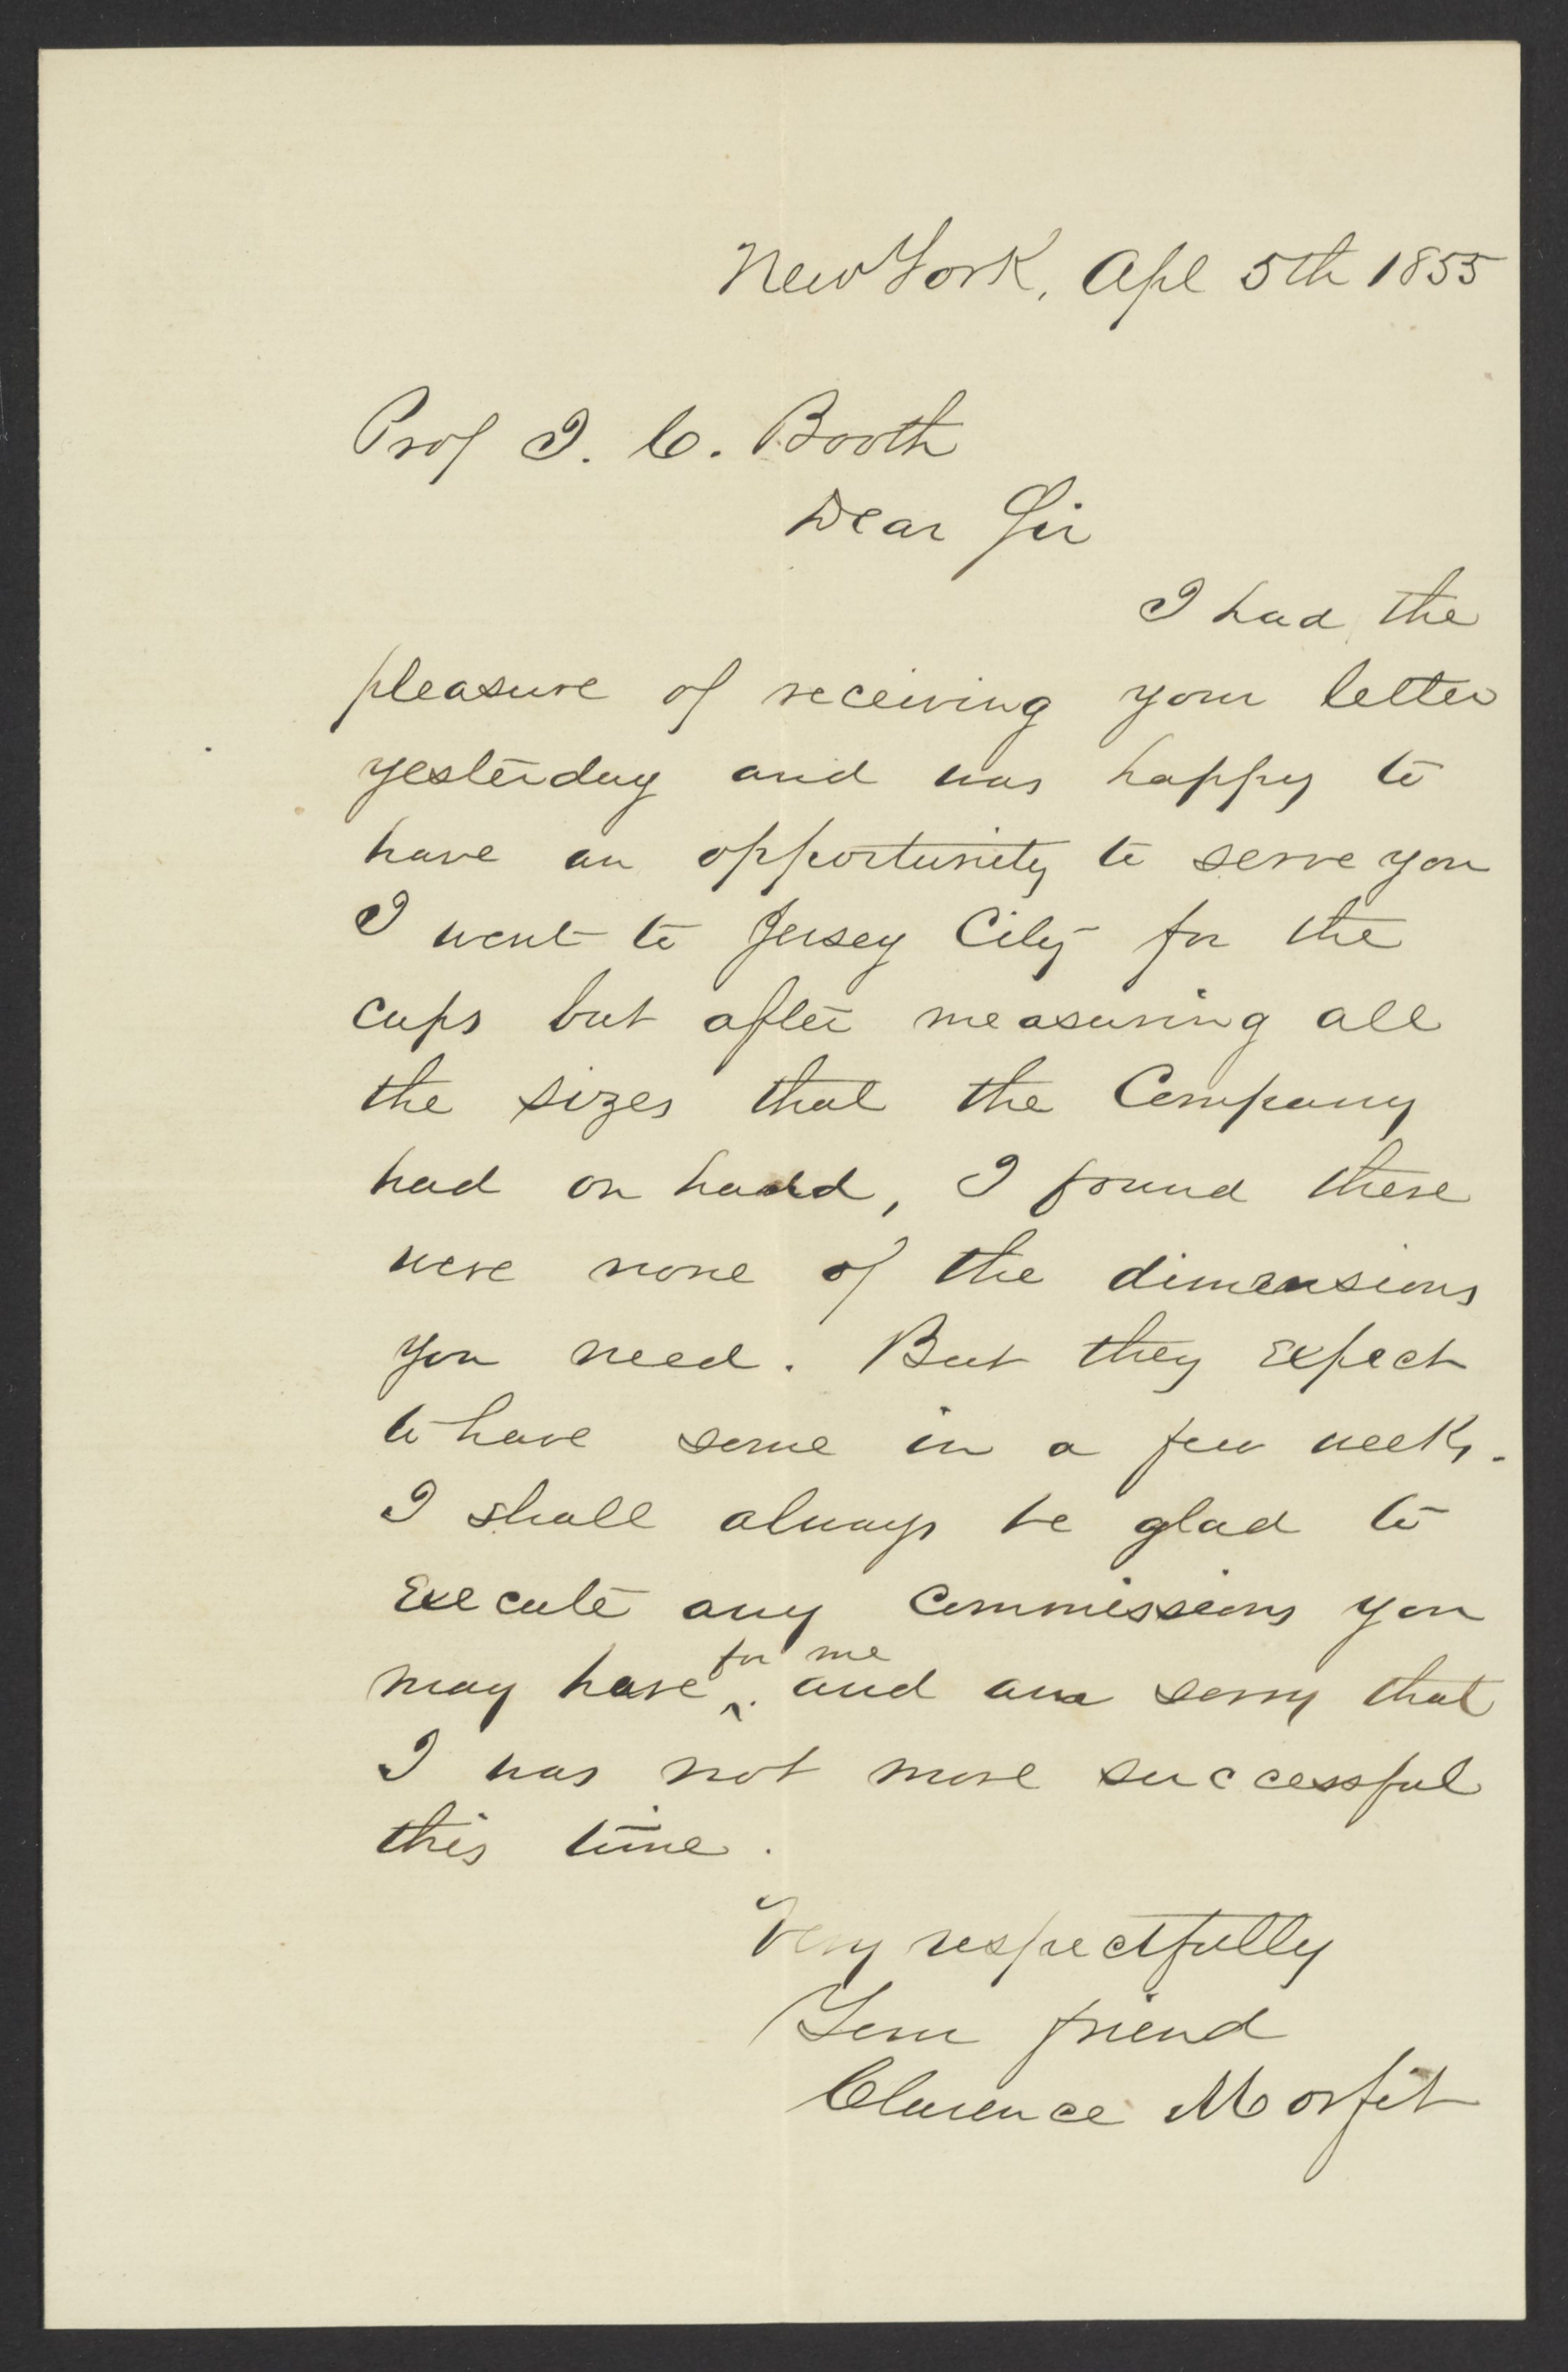 New York, Apl 5th 1855
Prof J. C. Booth
Dear Sir
I had the
pleasure of receiving your letter
yesterday and was happy to
have an opportunity to serve you
I went to Jersey City for the
cups but after measuring all
the sizes that the Company
had on hand, I found there
were none of the dimensions
you need. But they expect
to have some in a few weeks.
I shall always be glad to
execute any commissions you
for me
may have ^. and am sorry that
I was not more successful
this time.
Very respectfully
Your friend
Clarence Morfit